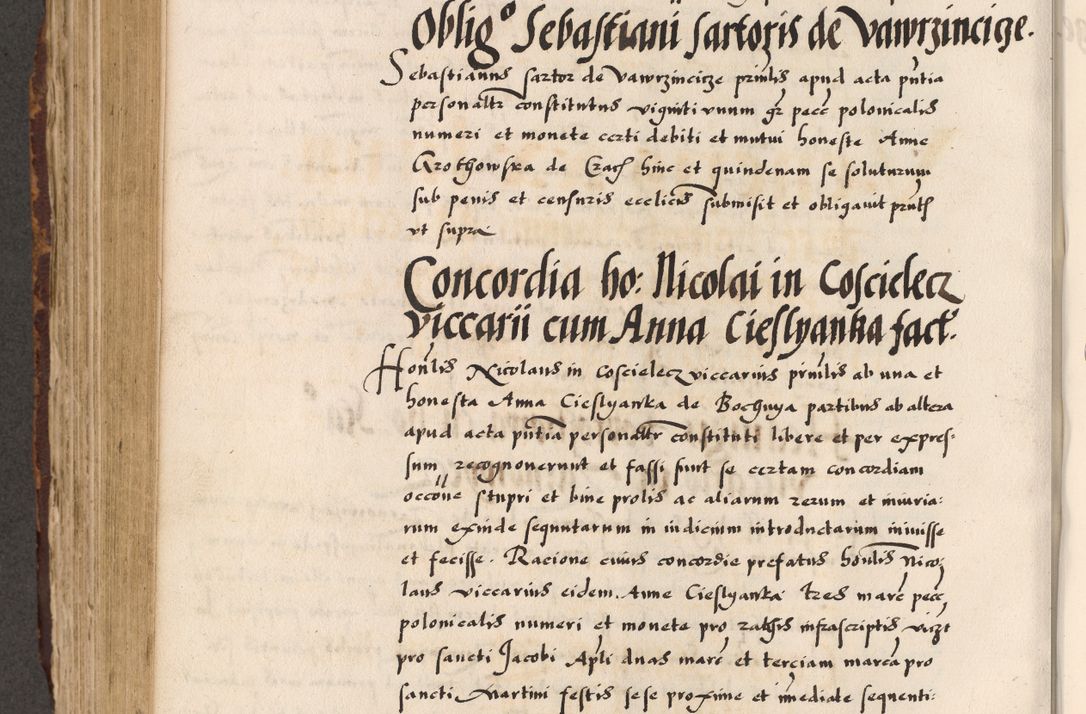 Oblig° Sebastiani sartoris de Vawrzincicze.
Sebastianus sartor de Vawrzincicze prinlis apud acta pntia
personaltr constitutus viginti vnum gr pecc polonicalis
numeri et monete certi debiti et mutui honeste Anne
Grothowska de Crach hinc et quindenam se soluturum
sub penis et censuris ecclicis submisit et obligauit prnth
vt supra
Concordia ho: Nicolai in Coscielecz
viccarii cum Anna Cieslyanka fact.
Honlis Nicolaus in Coscielecz viccarius prinlis ab una et
honesta Anna Cieslyanka de Bochnya partibus ab altera
apud acta pntia personaltr constituti libere et per expres-
sum recognouerunt et fassi sunt se certam concordiam
occone stupri et bine prolis ac aliarum rerum et iniuria:
rum exinde sequutarum in iudicium introductarum iniuisse
et fecisse. Racione cuius concordie prefatus honlis Nico:
laus viccarius eidem Anne Cieslyanka tres marc pecc
polonicalis numeri et monete pro rathis infrascriptis vizt
pro sancti Jacobi Apli duas marc et terciam marca pro
sancti Martini festis sese proxime et imediate sequenti: